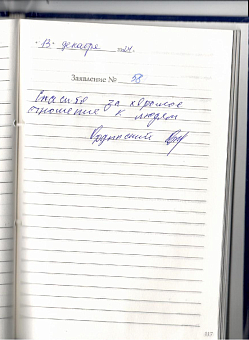 "13" декабря 2024.
Заявление № 58
Спасибо за хорошее
отношение к людям
117